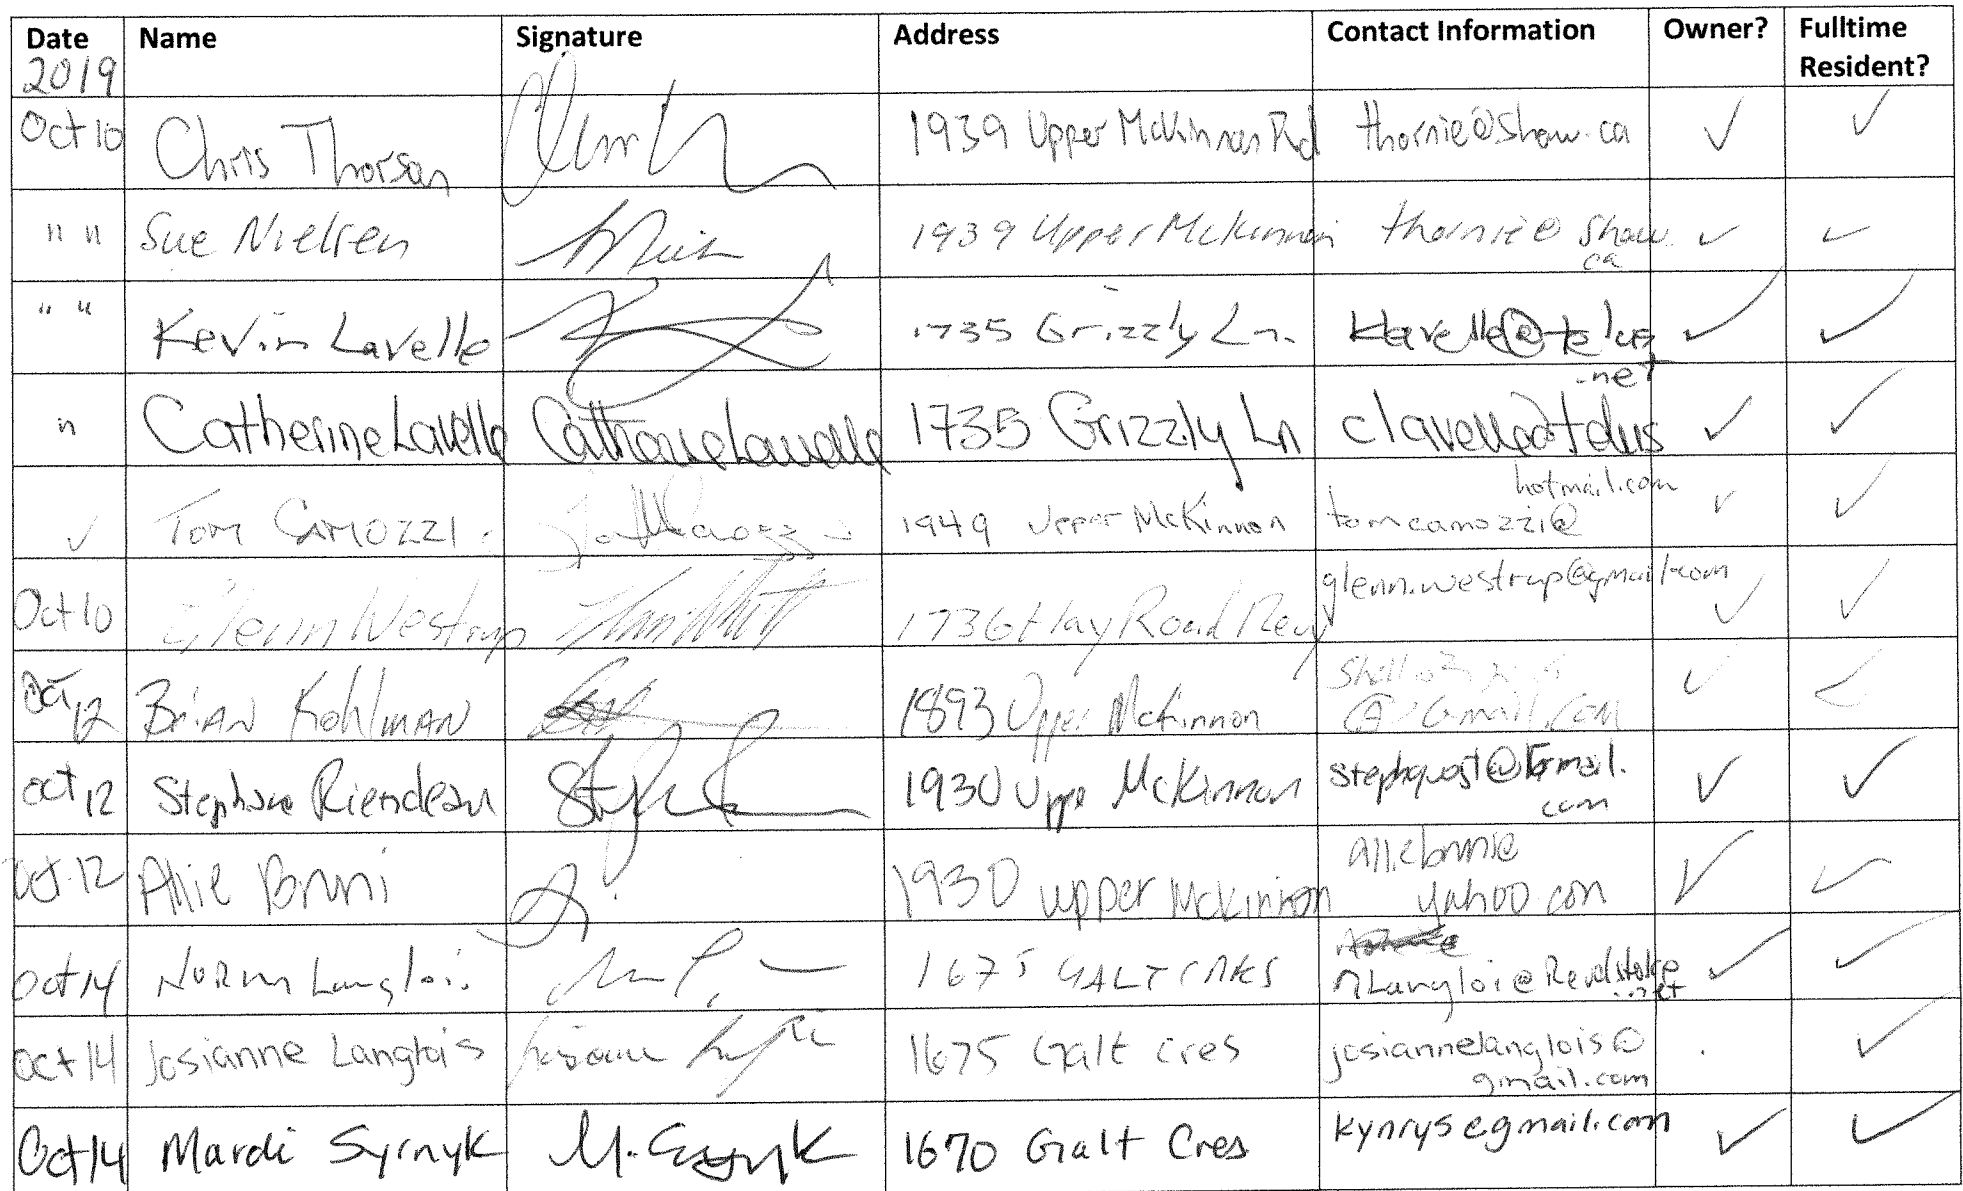 Date Name Signature Address Contact Information Owner? Fulltime
2019 Resident?
Oct 10 Chris Thorson 1939 Upper McKinnon Rd thornie@shaw.ca ✓ ✓
" " Sue Nielsen 1939 Upper McKinnon thornie@shaw. ✓ ✓
ca
" " Kevin Lavelle 1735 Grizzly Ln. klavelle@telus ✓ ✓
.net
" Catherine Lavelle Catherine Lavelle 1735 Grizzly Ln clavelle@telus ✓ ✓
hotmail.com
✓ Tom Camozzi 1949 Upper McKinnon tomcamozzi@ ✓ ✓
glenn.westrup@gmail.com
Oct 10 Glenn Westrup 1736 Hay Road ✓ ✓
Oct 12 Brian Kohlman 1893 Upper McKinnon ✓ ✓
@Gmail.com
oct 12 Stephane Riendeau 1930 Uppe McKinnon ✓ ✓
com
Oct.12 Allie Bruni 1930 upper McKinnon ✓ ✓
yahoo.com
Oct 14 Norm Langlois 1675 Galt Cres nlanglois@Revelstoke ✓ ✓
.net
Oct 14 Josianne Langlois 1675 Galt Cres josiannelanglois@ ✓
gmail.com
Oct 14 Mardi Syrnyk M. Syrnyk 1670 Galt Cres kynrys@gmail.com ✓ ✓